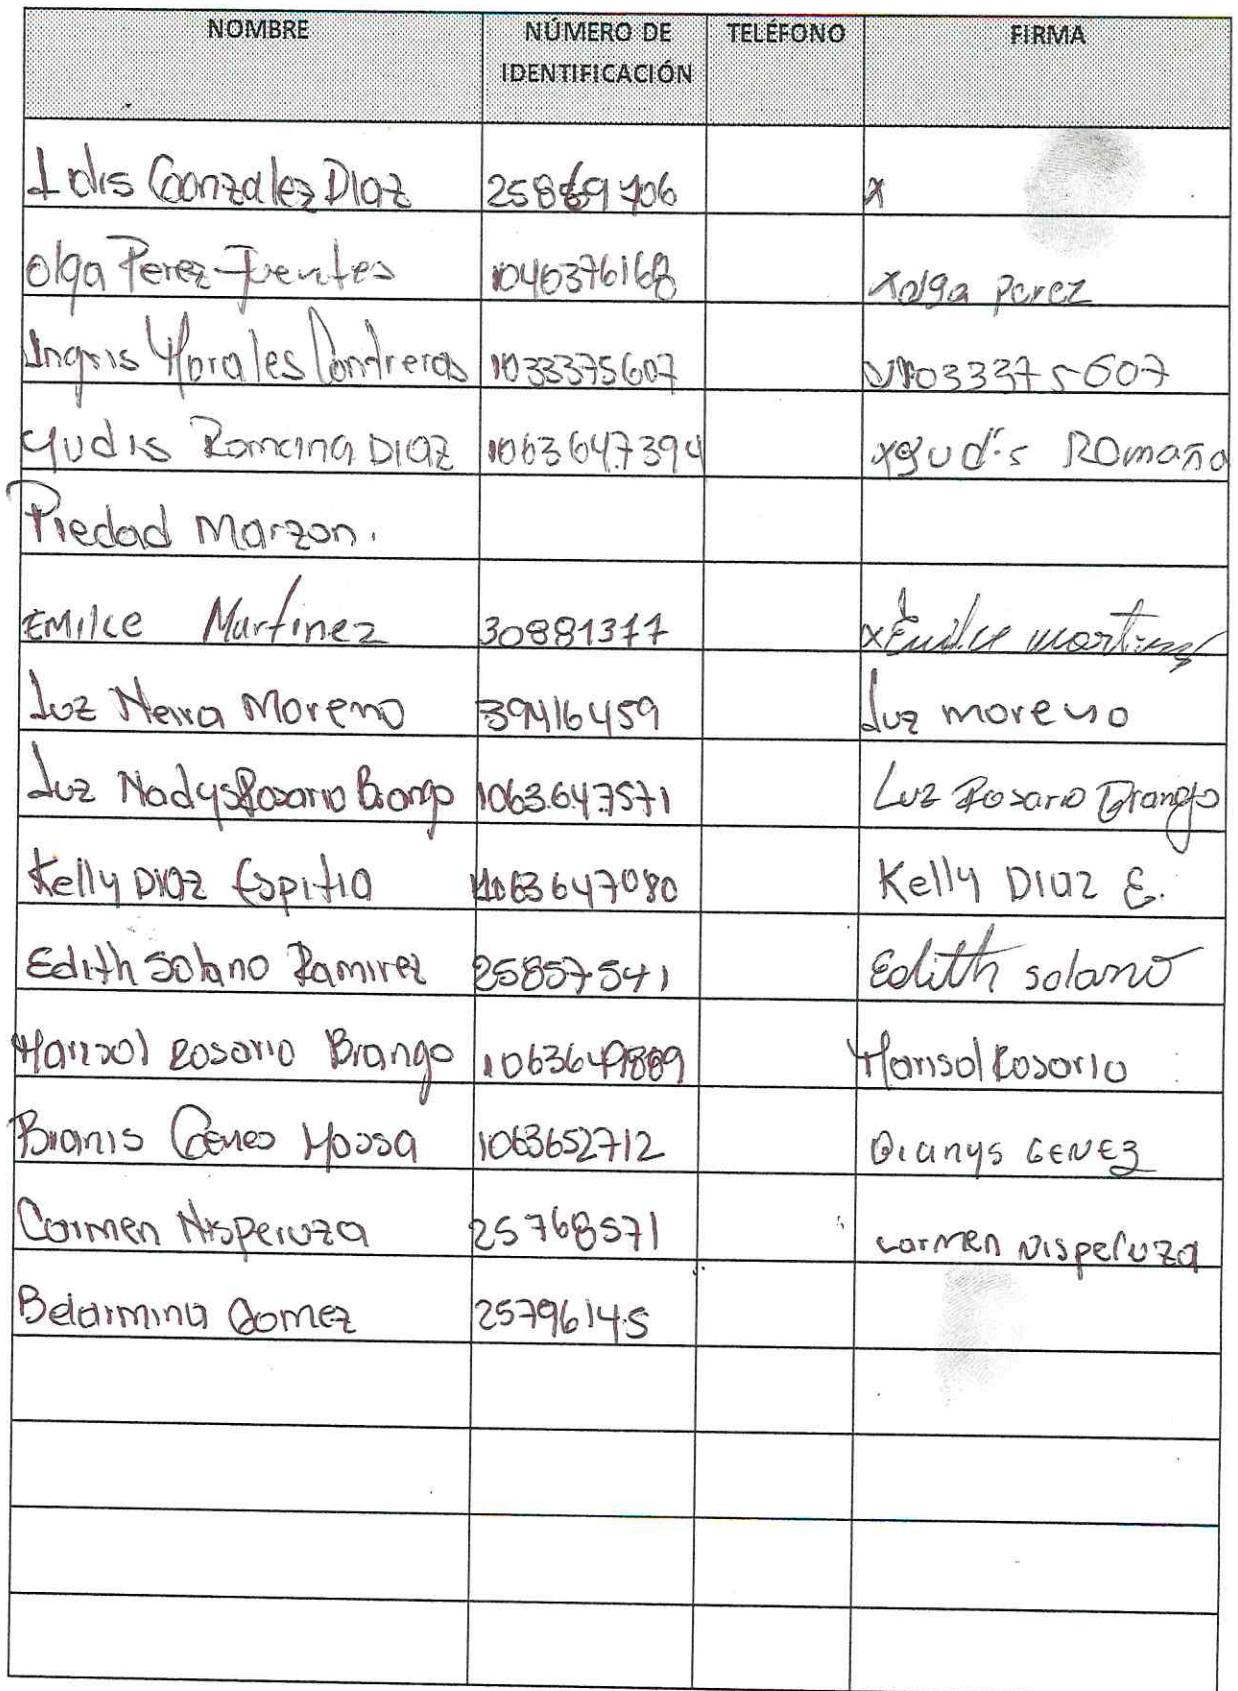 NOMBRE NÚMERO DE IDENTIFICACIÓN TELÉFONO FIRMA
Idis Gonzalez Diaz 25869706 x
Olga Perez Fuentes 1046376168 x olga perez
Ingris Morales Contreras 1033375607 1033375607
Yudis Romana Diaz 1063647394 x yudis Romaña
Piedad Marzon.
Emilce Martinez 30881377 x Emilce martinez
Luz Neira Moreno 39416459 Luz moreno
Luz Nadys Rosario Brango 1063647571 Luz Rosario Brango
Kelly Diaz Espitia 1063647080 Kelly Diaz E.
Edith Solano Ramirez 25857541 Edith solano
Marisol Rosario Brango Marisol Rosario
Branis Genes Mossa 1063652712 GENEZ
Carmen Nisperuza 25768571 carmen Nisperuza
Belarmina Gomez 25796145